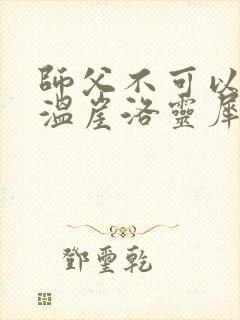 師父不可以
溫崖洛靈犀
鄧璽乾